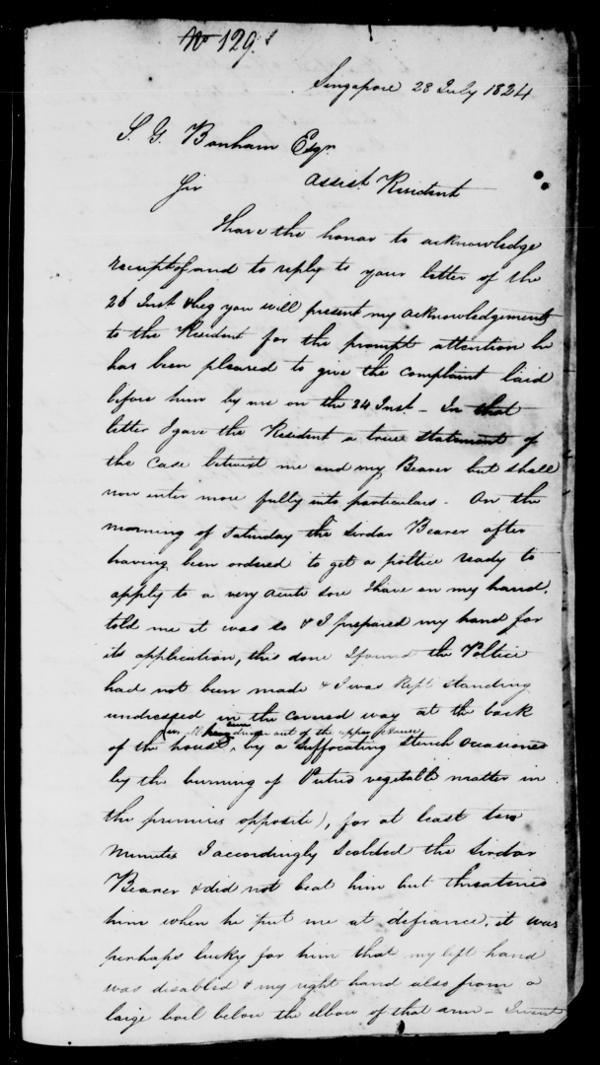 No 129.
Singapore 28 July 1824
S. G. Bonham Esqr.
Assist Resident
Sir
I have the honor to acknowledge
receipt of and to reply to your letter of the
26 Inst & beg you will present my acknowledgements
to the Resident for the prompt attention he
has been pleased to give the complaint laid
before him by me on the 24 Inst - In that
letter I gave the Resident a true statement of
the case betwixt me and my Bearer but shall
now enter more fully into particulars. On the
morning of Saturday the Sirdar Bearer after
having been ordered to get a poltice ready to
apply to a very acute sore I have on my hand,
told me it was so & I prepared my hand for
its application, this done I found the Poltice
had not been made & I was kept standing
undressed in the covered way at the back
driven out of the upper
of the house, by a suffocating stench occasioned
by the burning of Putrid vegetable matter in
the premises opposite), for at least ten
minutes I accordingly scolded the Sirdar
Bearer & did not beat him but threatened
him when he put me at defiance, it was
perhaps lucky for him that my left hand
was disabled & my right hand also from a
large boil below the elbow of that arm - I went